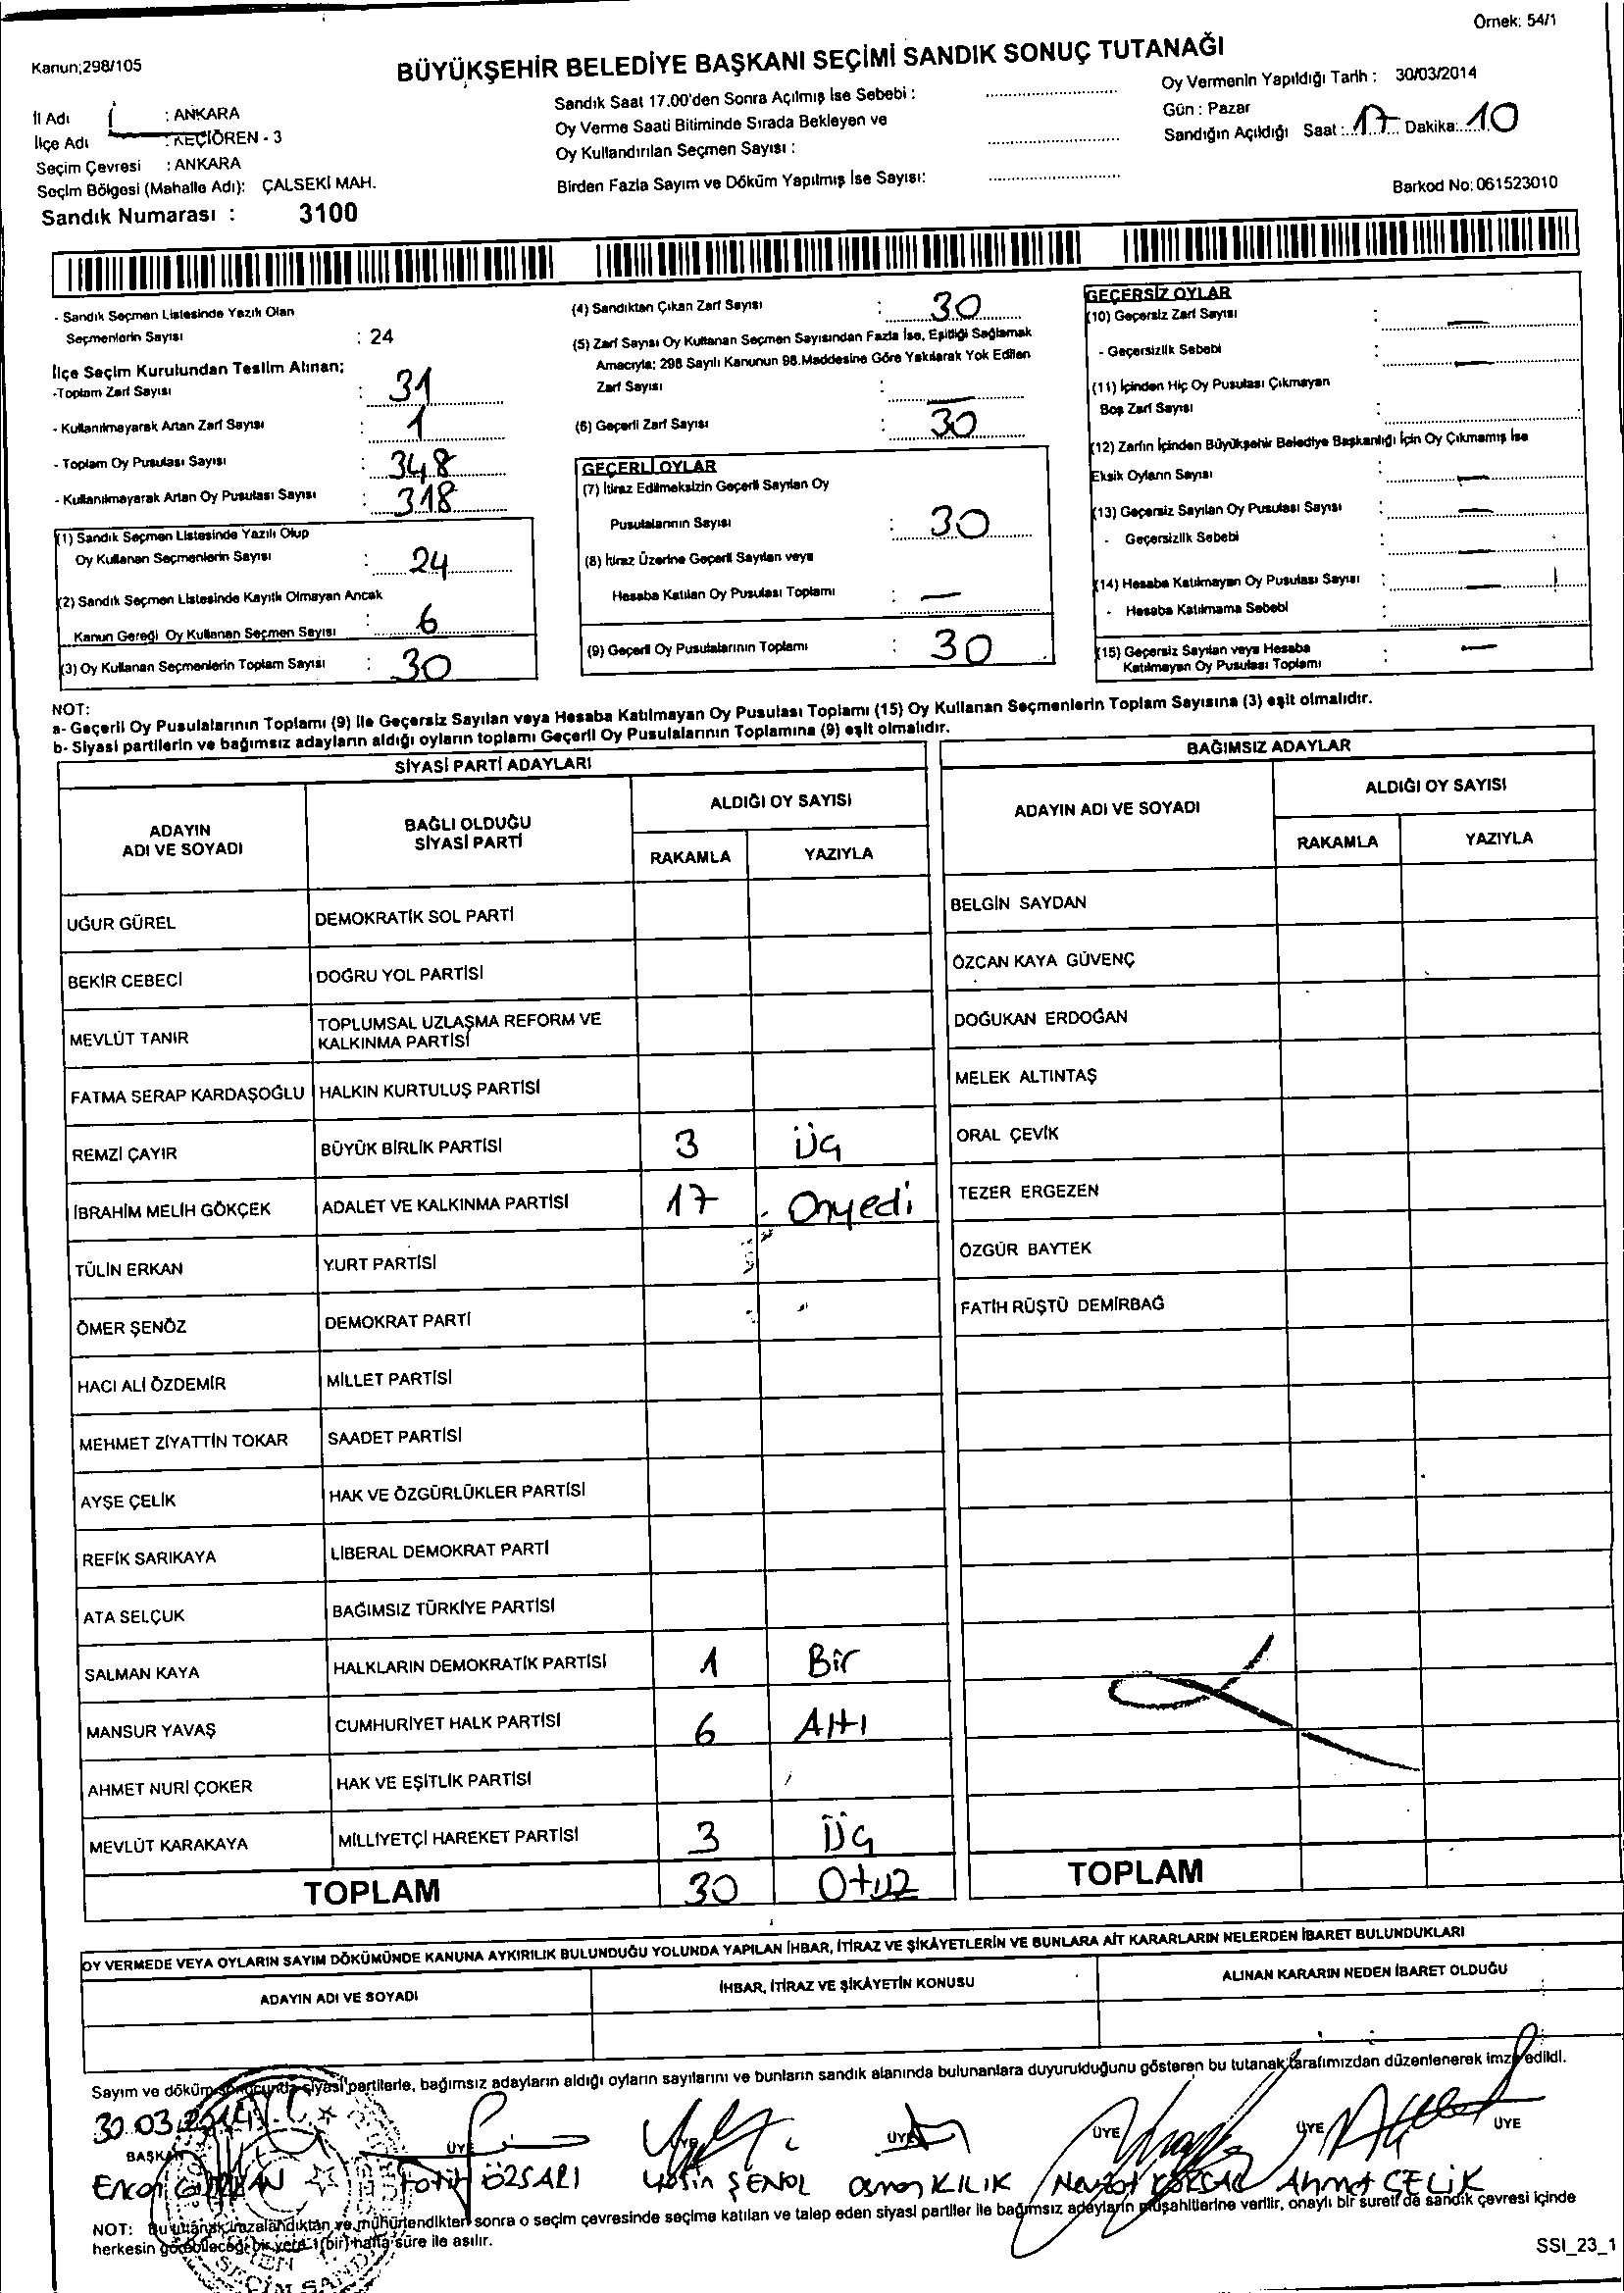 Örnek: 54/1
Kanun;298/105
BÜYÜKŞEHİR BELEDİYE BAŞKANI SEÇİMİ SANDIK SONUÇ TUTANAĞI
İl Adı : ANKARA
İlçe Adı : KEÇİÖREN - 3
Seçim Çevresi : ANKARA
Seçim Bölgesi (Mahalle Adı): ÇALSEKİ MAH.
Sandık Numarası : 3100
Sandık Saat 17.00'den Sonra Açılmış İse Sebebi :
Oy Verme Saati Bitiminde Sırada Bekleyen ve
Oy Kullandırılan Seçmen Sayısı :
Birden Fazla Sayım ve Döküm Yapılmış İse Sayısı:
Oy Vermenin Yapıldığı Tarih : 30/03/2014
Gün : Pazar
Sandığın Açıldığı Saat : 17 Dakika: 10
Barkod No: 061523010
- Sandık Seçmen Listesinde Yazılı Olan
Seçmenlerin Sayısı : 24
İlçe Seçim Kurulundan Teslim Alınan;
-Toplam Zarf Sayısı : 31
- Kullanılmayarak Artan Zarf Sayısı : 1
- Toplam Oy Pusulası Sayısı : 348
- Kullanılmayarak Artan Oy Pusulası Sayısı : 318
(1) Sandık Seçmen Listesinde Yazılı Olup
Oy Kullanan Seçmenlerin Sayısı : 24
(2) Sandık Seçmen Listesinde Kayıtlı Olmayan Ancak
Kanun Gereği Oy Kullanan Seçmen Sayısı : 6
(3) Oy Kullanan Seçmenlerin Toplam Sayısı : 30
(4) Sandıktan Çıkan Zarf Sayısı : 30
(5) Zarf Sayısı Oy Kullanan Seçmen Sayısından Fazla İse, Eşitliği Sağlamak
Amacıyla; 298 Sayılı Kanunun 98.Maddesine Göre Yakılarak Yok Edilen
Zarf Sayısı : —
(6) Geçerli Zarf Sayısı : 30
GEÇERLİ OYLAR
(7) İtiraz Edilmeksizin Geçerli Sayılan Oy
Pusulalarının Sayısı : 30
(8) İtiraz Üzerine Geçerli Sayılan veya
Hesaba Katılan Oy Pusulası Toplamı : —
(9) Geçerli Oy Pusulalarının Toplamı : 30
GEÇERSİZ OYLAR
(10) Geçersiz Zarf Sayısı : —
- Geçersizlik Sebebi : —
(11) İçinden Hiç Oy Pusulası Çıkmayan
Boş Zarf Sayısı :
(12) Zarfın İçinden Büyükşehir Belediye Başkanlığı İçin Oy Çıkmamış İse
Eksik Oyların Sayısı : —
(13) Geçersiz Sayılan Oy Pusulası Sayısı : —
- Geçersizlik Sebebi : —
(14) Hesaba Katılmayan Oy Pusulası Sayısı : —
- Hesaba Katılmama Sebebi :
(15) Geçersiz Sayılan veya Hesaba
Katılmayan Oy Pusulası Toplamı : —
NOT:
a- Geçerli Oy Pusulalarının Toplamı (9) ile Geçersiz Sayılan veya Hesaba Katılmayan Oy Pusulası Toplamı (15) Oy Kullanan Seçmenlerin Toplam Sayısına (3) eşit olmalıdır.
b- Siyasi partilerin ve bağımsız adayların aldığı oyların toplamı Geçerli Oy Pusulalarının Toplamına (9) eşit olmalıdır.
SİYASİ PARTİ ADAYLARI
ADAYIN ADI VE SOYADI
BAĞLI OLDUĞU SİYASİ PARTİ
ALDIĞI OY SAYISI
RAKAMLA YAZIYLA
UĞUR GÜREL DEMOKRATİK SOL PARTİ
BEKİR CEBECİ DOĞRU YOL PARTİSİ
MEVLÜT TANIR TOPLUMSAL UZLAŞMA REFORM VE KALKINMA PARTİSİ
FATMA SERAP KARDAŞOĞLU HALKIN KURTULUŞ PARTİSİ
REMZİ ÇAYIR BÜYÜK BİRLİK PARTİSİ 3 ÜÇ
İBRAHİM MELİH GÖKÇEK ADALET VE KALKINMA PARTİSİ 17 Onyedi
TÜLİN ERKAN YURT PARTİSİ
ÖMER ŞENÖZ DEMOKRAT PARTİ
HACI ALİ ÖZDEMİR MİLLET PARTİSİ
MEHMET ZİYATTİN TOKAR SAADET PARTİSİ
AYŞE ÇELİK HAK VE ÖZGÜRLÜKLER PARTİSİ
REFİK SARIKAYA LİBERAL DEMOKRAT PARTİ
ATA SELÇUK BAĞIMSIZ TÜRKİYE PARTİSİ
SALMAN KAYA HALKLARIN DEMOKRATİK PARTİSİ 1 Bir
MANSUR YAVAŞ CUMHURİYET HALK PARTİSİ 6 Altı
AHMET NURİ ÇOKER HAK VE EŞİTLİK PARTİSİ
MEVLÜT KARAKAYA MİLLİYETÇİ HAREKET PARTİSİ 3 ÜÇ
TOPLAM 30 Otuz
BAĞIMSIZ ADAYLAR
ADAYIN ADI VE SOYADI
ALDIĞI OY SAYISI
RAKAMLA YAZIYLA
BELGİN SAYDAN
ÖZCAN KAYA GÜVENÇ
DOĞUKAN ERDOĞAN
MELEK ALTINTAŞ
ORAL ÇEVİK
TEZER ERGEZEN
ÖZGÜR BAYTEK
FATİH RÜŞTÜ DEMİRBAĞ
TOPLAM
OY VERMEDE VEYA OYLARIN SAYIM DÖKÜMÜNDE KANUNA AYKIRILIK BULUNDUĞU YOLUNDA YAPILAN İHBAR, İTİRAZ VE ŞİKÂYETLERİN VE BUNLARA AİT KARARLARIN NELERDEN İBARET BULUNDUKLARI
ADAYIN ADI VE SOYADI
İHBAR, İTİRAZ VE ŞİKÂYETİN KONUSU
ALINAN KARARIN NEDEN İBARET OLDUĞU
Sayım ve döküm sonucunda siyasi partilerle, bağımsız adayların aldığı oyların sayılarını ve bunların sandık alanında bulunanlara duyurulduğunu gösteren bu tutanak tarafımızdan düzenlenerek imza edildi.
30.03.2014
BAŞKAN ÜYE ÜYE ÜYE ÜYE ÜYE ÜYE
Ercan Fatih ÖZSARI ŞENOL Osman KILIK Ahmet ÇELİK
NOT: Bu tutanak imzalandıktan ve mühürlendikten sonra o seçim çevresinde seçime katılan ve talep eden siyasi partiler ile bağımsız adayların müşahitlerine verilir, onaylı bir sureti de sandık çevresi içinde
herkesin görebileceği bir yere 1(bir) hafta süre ile asılır.
SSI_23_1